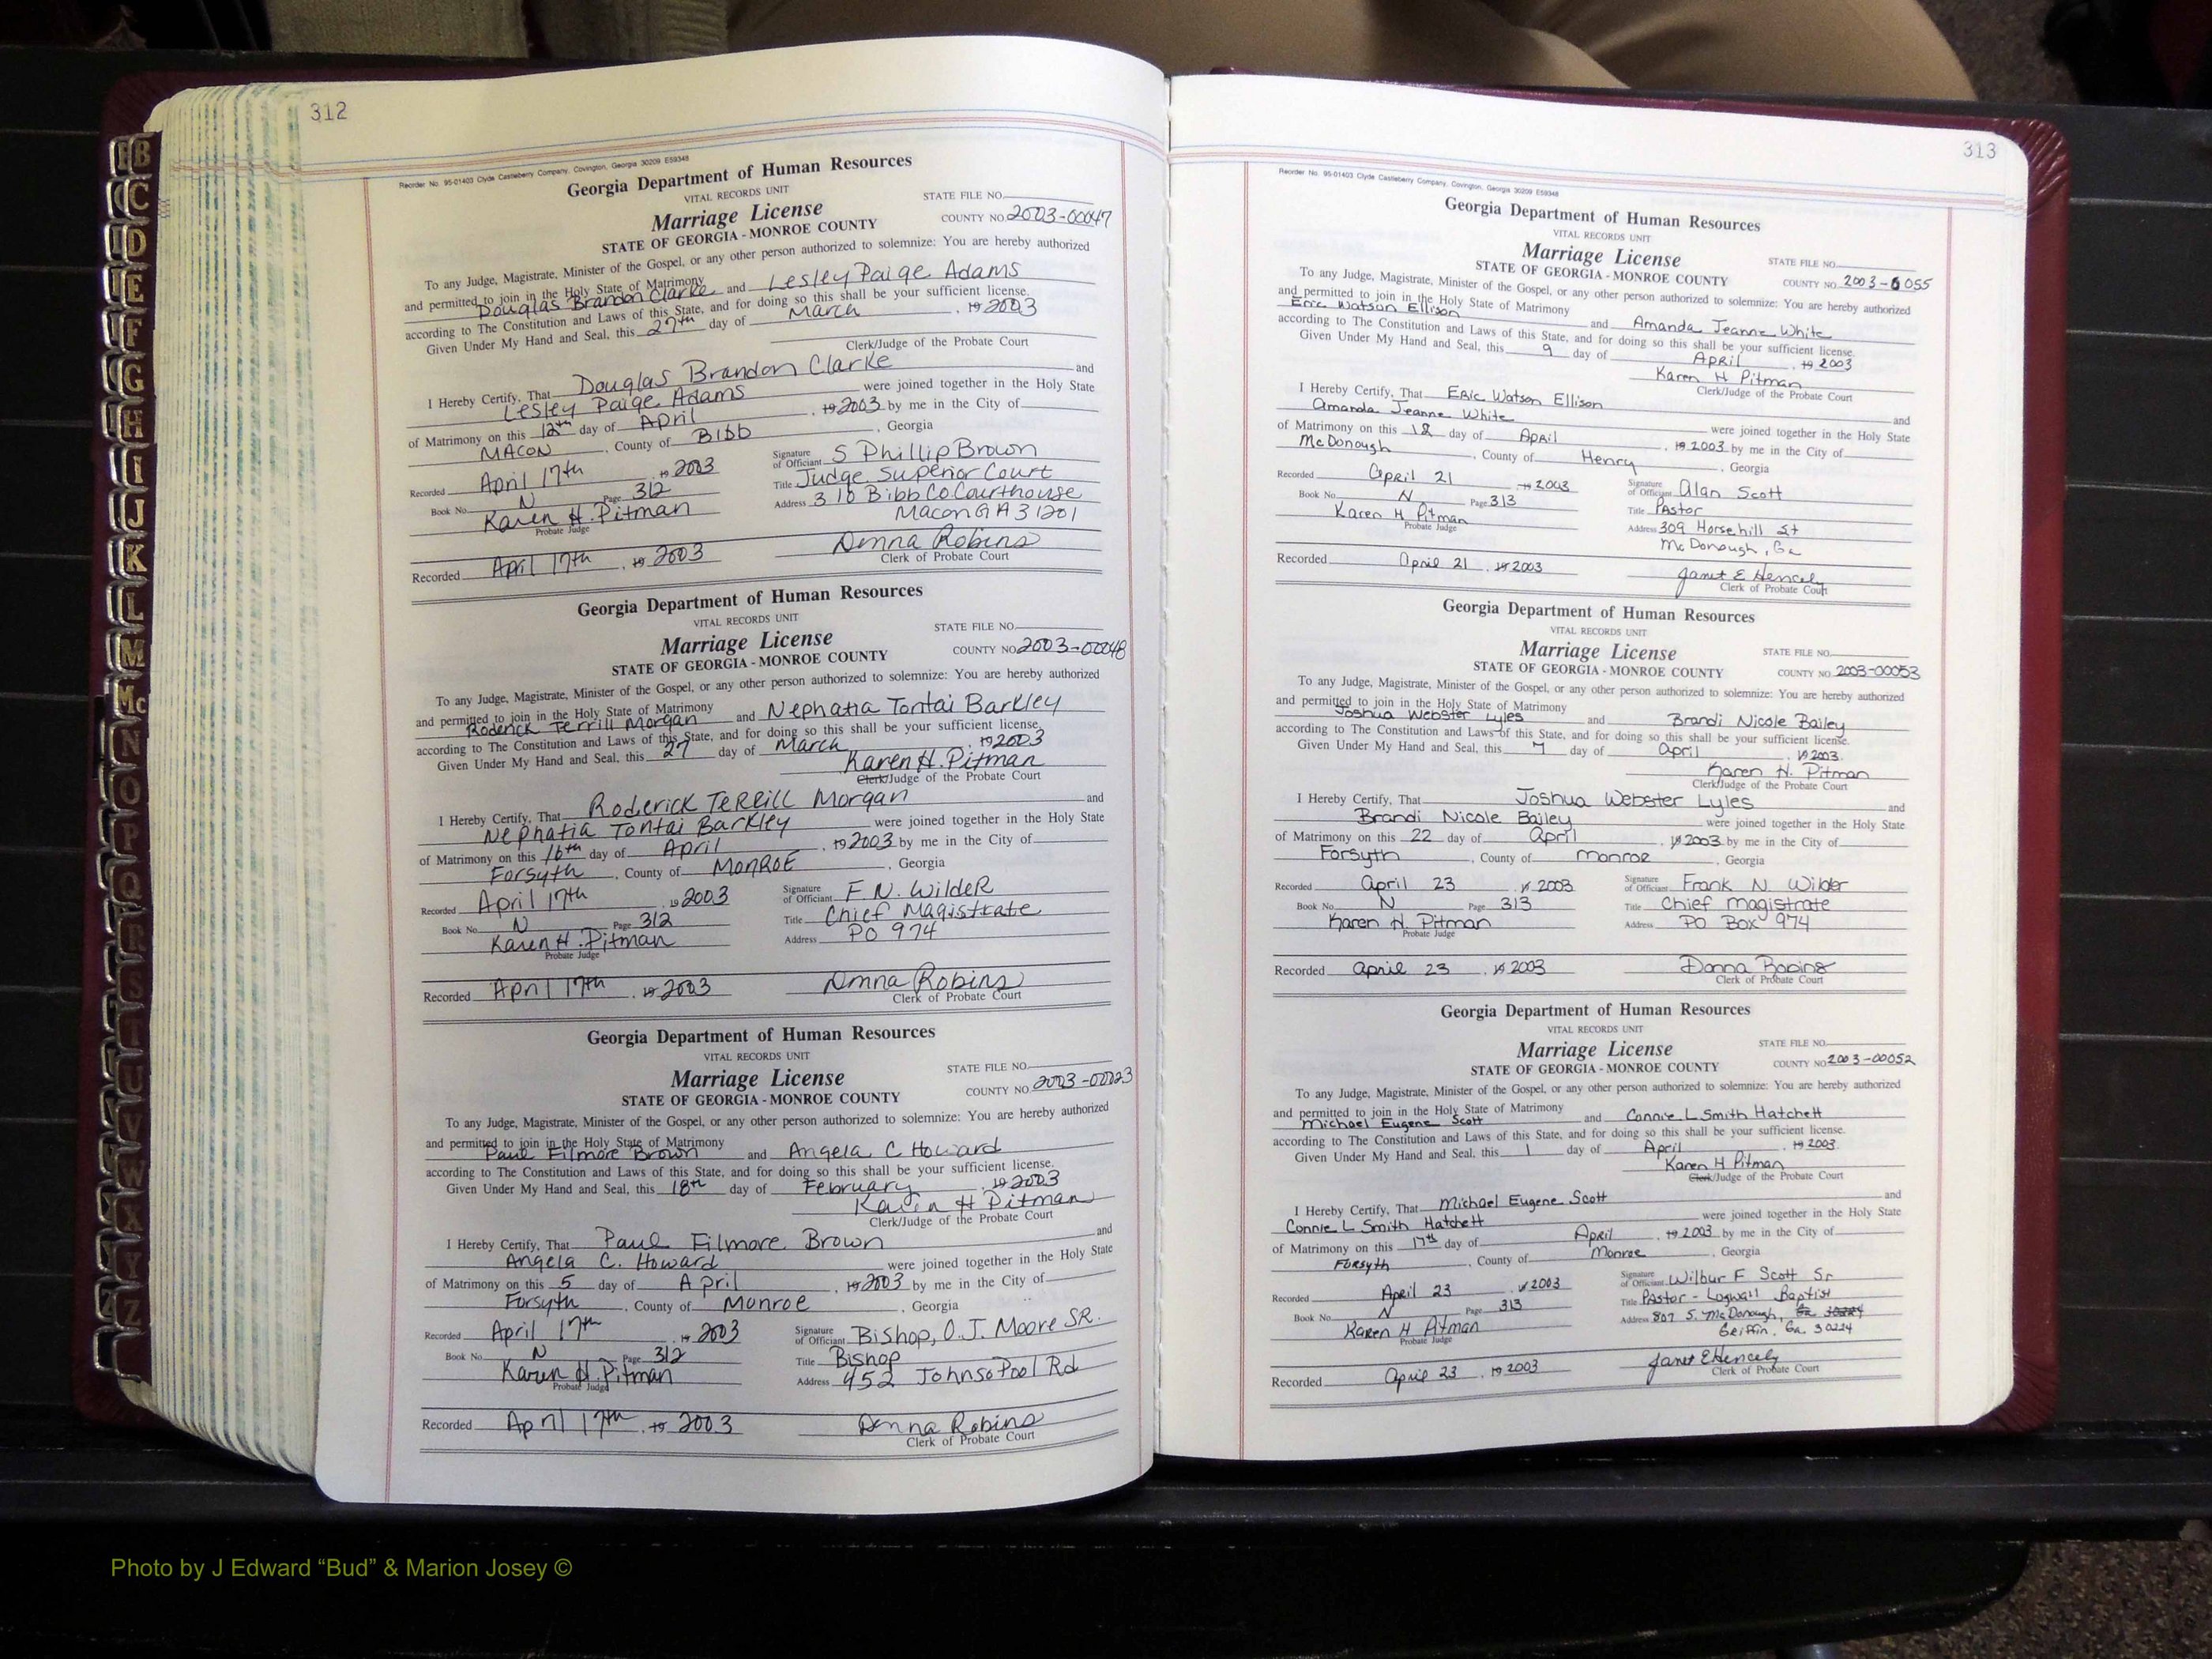 312
Reorder No. 95-01403 Clyde Castleberry Company, Covington, Georgia 30209 E59348
Georgia Department of Human Resources
VITAL RECORDS UNIT
STATE FILE NO.
Marriage License
COUNTY NO. 2003-00047
STATE OF GEORGIA - MONROE COUNTY
To any Judge, Magistrate, Minister of the Gospel, or any other person authorized to solemnize: You are hereby authorized
and permitted to join in the Holy State of Matrimony
Douglas Brandon Clarke and Lesley Paige Adams
according to The Constitution and Laws of this State, and for doing so this shall be your sufficient license.
Given Under My Hand and Seal, this 27th day of March, 19 2003
Clerk/Judge of the Probate Court
I Hereby Certify, That Douglas Brandon Clarke and
Lesley Paige Adams were joined together in the Holy State
of Matrimony on this 12th day of April, 19 2003 by me in the City of
MACON, County of Bibb, Georgia
Recorded April 17th, 19 2003 Signature of Officiant S Phillip Brown
Book No. N Page 312 Title Judge Superior Court
Karen H. Pitman Address 310 Bibb Co Courthouse
Probate Judge Macon GA 31201
Donna Robins
Recorded April 17th, 19 2003 Clerk of Probate Court
Georgia Department of Human Resources
VITAL RECORDS UNIT
STATE FILE NO.
Marriage License
COUNTY NO. 2003-00048
STATE OF GEORGIA - MONROE COUNTY
To any Judge, Magistrate, Minister of the Gospel, or any other person authorized to solemnize: You are hereby authorized
and permitted to join in the Holy State of Matrimony
Roderick Terrill Morgan and Nephatia Tontai Barkley
according to The Constitution and Laws of this State, and for doing so this shall be your sufficient license.
Given Under My Hand and Seal, this 27 day of March, 19 2003
Karen H. Pitman
Clerk/Judge of the Probate Court
I Hereby Certify, That Roderick Terrill Morgan and
Nephatia Tontai Barkley were joined together in the Holy State
of Matrimony on this 16th day of April, 19 2003 by me in the City of
Forsyth, County of Monroe, Georgia
Recorded April 17th, 19 2003 Signature of Officiant F. N. Wilder
Book No. N Page 312 Title Chief Magistrate
Karen H. Pitman Address PO 974
Probate Judge
Donna Robins
Recorded April 17th, 19 2003 Clerk of Probate Court
Georgia Department of Human Resources
VITAL RECORDS UNIT
STATE FILE NO.
Marriage License
COUNTY NO. 2003-00023
STATE OF GEORGIA - MONROE COUNTY
To any Judge, Magistrate, Minister of the Gospel, or any other person authorized to solemnize: You are hereby authorized
and permitted to join in the Holy State of Matrimony
Paul Filmore Brown and Angela C Howard
according to The Constitution and Laws of this State, and for doing so this shall be your sufficient license.
Given Under My Hand and Seal, this 18th day of February, 19 2003
Karen H Pitman
Clerk/Judge of the Probate Court
I Hereby Certify, That Paul Filmore Brown and
Angela C. Howard were joined together in the Holy State
of Matrimony on this 5 day of April, 19 2003 by me in the City of
Forsyth, County of Monroe, Georgia
Recorded April 17th, 19 2003 Signature of Officiant Bishop, O.J. Moore SR.
Book No. N Page 312 Title Bishop
Karen H. Pitman Address 452 Johnso Pool Rd
Probate Judge
Donna Robins
Recorded April 17th, 19 2003 Clerk of Probate Court
313
Reorder No. 95-01403 Clyde Castleberry Company, Covington, Georgia 30209 E59348
Georgia Department of Human Resources
VITAL RECORDS UNIT
STATE FILE NO.
Marriage License
COUNTY NO. 2003-0055
STATE OF GEORGIA - MONROE COUNTY
To any Judge, Magistrate, Minister of the Gospel, or any other person authorized to solemnize: You are hereby authorized
and permitted to join in the Holy State of Matrimony
Eric Watson Ellison and Amanda Jeanne White
according to The Constitution and Laws of this State, and for doing so this shall be your sufficient license.
Given Under My Hand and Seal, this 9 day of April, 19 2003
Karen H Pitman
Clerk/Judge of the Probate Court
I Hereby Certify, That Eric Watson Ellison and
Amanda Jeanne White were joined together in the Holy State
of Matrimony on this 12 day of April, 19 2003 by me in the City of
McDonough, County of Henry, Georgia
Recorded April 21, 19 2003 Signature of Officiant Alan Scott
Book No. N Page 313 Title Pastor
Karen H Pitman Address 309 Horsehill St
Probate Judge McDonough, Ga
Janet E Hencely
Recorded April 21, 19 2003 Clerk of Probate Court
Georgia Department of Human Resources
VITAL RECORDS UNIT
STATE FILE NO.
Marriage License
COUNTY NO. 2003-00053
STATE OF GEORGIA - MONROE COUNTY
To any Judge, Magistrate, Minister of the Gospel, or any other person authorized to solemnize: You are hereby authorized
and permitted to join in the Holy State of Matrimony
Joshua Webster Lyles and Brandi Nicole Bailey
according to The Constitution and Laws of this State, and for doing so this shall be your sufficient license.
Given Under My Hand and Seal, this 7 day of April, 19 2003
Karen H. Pitman
Clerk/Judge of the Probate Court
I Hereby Certify, That Joshua Webster Lyles and
Brandi Nicole Bailey were joined together in the Holy State
of Matrimony on this 22 day of April, 19 2003 by me in the City of
Forsyth, County of Monroe, Georgia
Recorded April 23, 19 2003 Signature of Officiant Frank N. Wilder
Book No. N Page 313 Title Chief magistrate
Karen H. Pitman Address PO Box 974
Probate Judge
Recorded April 23, 19 2003 Donna Robins
Clerk of Probate Court
Georgia Department of Human Resources
VITAL RECORDS UNIT
STATE FILE NO.
Marriage License
COUNTY NO. 2003-00052
STATE OF GEORGIA - MONROE COUNTY
To any Judge, Magistrate, Minister of the Gospel, or any other person authorized to solemnize: You are hereby authorized
and permitted to join in the Holy State of Matrimony
Michael Eugene Scott and Connie L Smith Hatchett
according to The Constitution and Laws of this State, and for doing so this shall be your sufficient license.
Given Under My Hand and Seal, this 1 day of April, 19 2003
Karen H Pitman
Clerk/Judge of the Probate Court
I Hereby Certify, That Michael Eugene Scott and
Connie L Smith Hatchett were joined together in the Holy State
of Matrimony on this 17th day of April, 19 2003 by me in the City of
Forsyth, County of Monroe, Georgia
Recorded April 23, 19 2003 Signature of Officiant Wilbur F Scott Sr
Book No. N Page 313 Title Pastor - Baptist
Karen H Pitman Address 807 S. McDonough,
Probate Judge Griffin, Ga. 30224
Janet E Hencely
Recorded April 23, 19 2003 Clerk of Probate Court
B
C
D
E
F
G
H
I
J
K
L
M
Mc
N
O
P
Q
R
S
T
U
V
W
X
Y
Z
Photo by J Edward “Bud” & Marion Josey ©